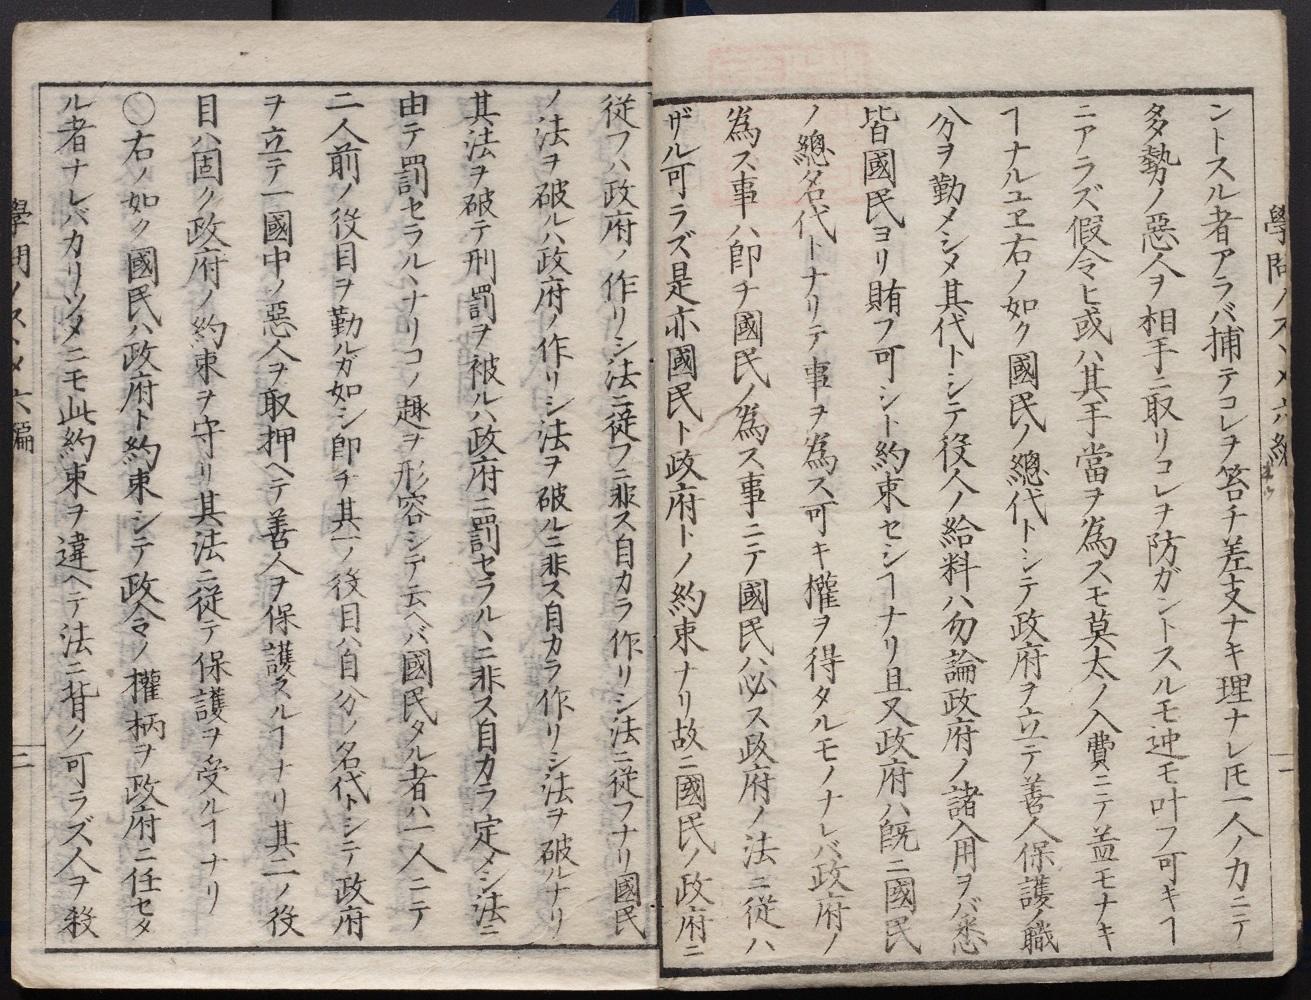 ントスル者アラバ捕テコレヲ笞チ差支ナキ理ナレ𪜈一人ノ力ニテ
多勢ノ惡人ヲ相手ニ取リコレヲ防ガントスルモ迚モ叶フ可キヿ
ニアラズ假令ヒ或ハ其手當ヲ爲スモ莫太ノ入費ニテ益モナキ
ヿナルユヱ右ノ如ク國民ノ總代トシテ政府ヲ立テ善人保護ノ職
分ヲ勤メシメ其代トシテ役人ノ給料ハ勿論政府ノ諸入用ヲバ悉
皆國民ヨリ賄フ可シト約束セシヿナリ且又政府ハ既ニ國民
ノ總名代トナリテ事ヲ爲ス可キ權ヲ得タルモノナレバ政府ノ
爲ス事ハ即チ國民ノ爲ス事ニテ國民ハ必ス政府ノ法ニ從ハ
ザル可ラズ是亦國民ト政府トノ約束ナリ故ニ國民ノ政府ニ
從フハ政府ノ作リシ法ニ從フニ非ス自カラ作リシ法ニ從フナリ國民
ノ法ヲ破ルハ政府ノ作リシ法ヲ破ルニ非ス自カラ作リシ法ヲ破ルナリ
其法ヲ破テ刑罰ヲ被ルハ政府ニ罰セラルヽニ非ス自カラ定メシ法ニ
由テ罰セラルヽナリコノ趣ヲ形容シテ云ヘバ國民タル者ハ一人ニテ
二人前ノ役目ヲ勤ルガ如シ即チ其一ノ役目ハ自分ノ名代トシテ政府
ヲ立テ一國中ノ惡人ヲ取押ヘテ善人ヲ保護スルヿナリ其二ノ役
目ハ固ク政府ノ約束ヲ守リ其法ニ從テ保護ヲ受ルヿナリ
○右ノ如ク國民ハ政府ト約束シテ政令ノ權柄ヲ政府ニ任セタ
ル者ナレバカリソメニモ此約束ヲ違ヘテ法ニ背ク可ラズ人ヲ殺
學問ノスヽメ六編
二